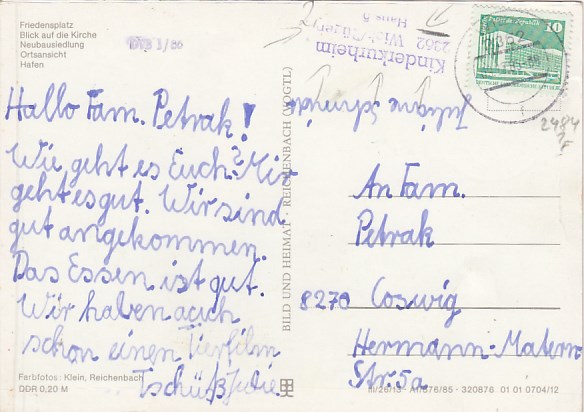 Friedensplatz
Blick auf die Kirche
Neubausiedlung
Ortsansicht
Hafen
Kinderkurheim
2362 Wiek/Rügen
Haus
10
2362
Hallo Fam. Petrak!
Wie geht es Euch? Mir
geht es gut. Wir sind
gut angekommen.
Das Essen ist gut.
Wir haben auch
schon einen Tierfilm
Tschüß Julie.
Juliane Schneider
BILD UND HEIMAT · REICHENBACH (VOGTL)
An Fam.
Petrak
8270 Coswig
Hermann-Matern
Str. 5a
2484
Farbfotos: Klein, Reichenbach
DDR 0,20 M
III/26/13 A1/676/85 · 320876 01 01 0704/12